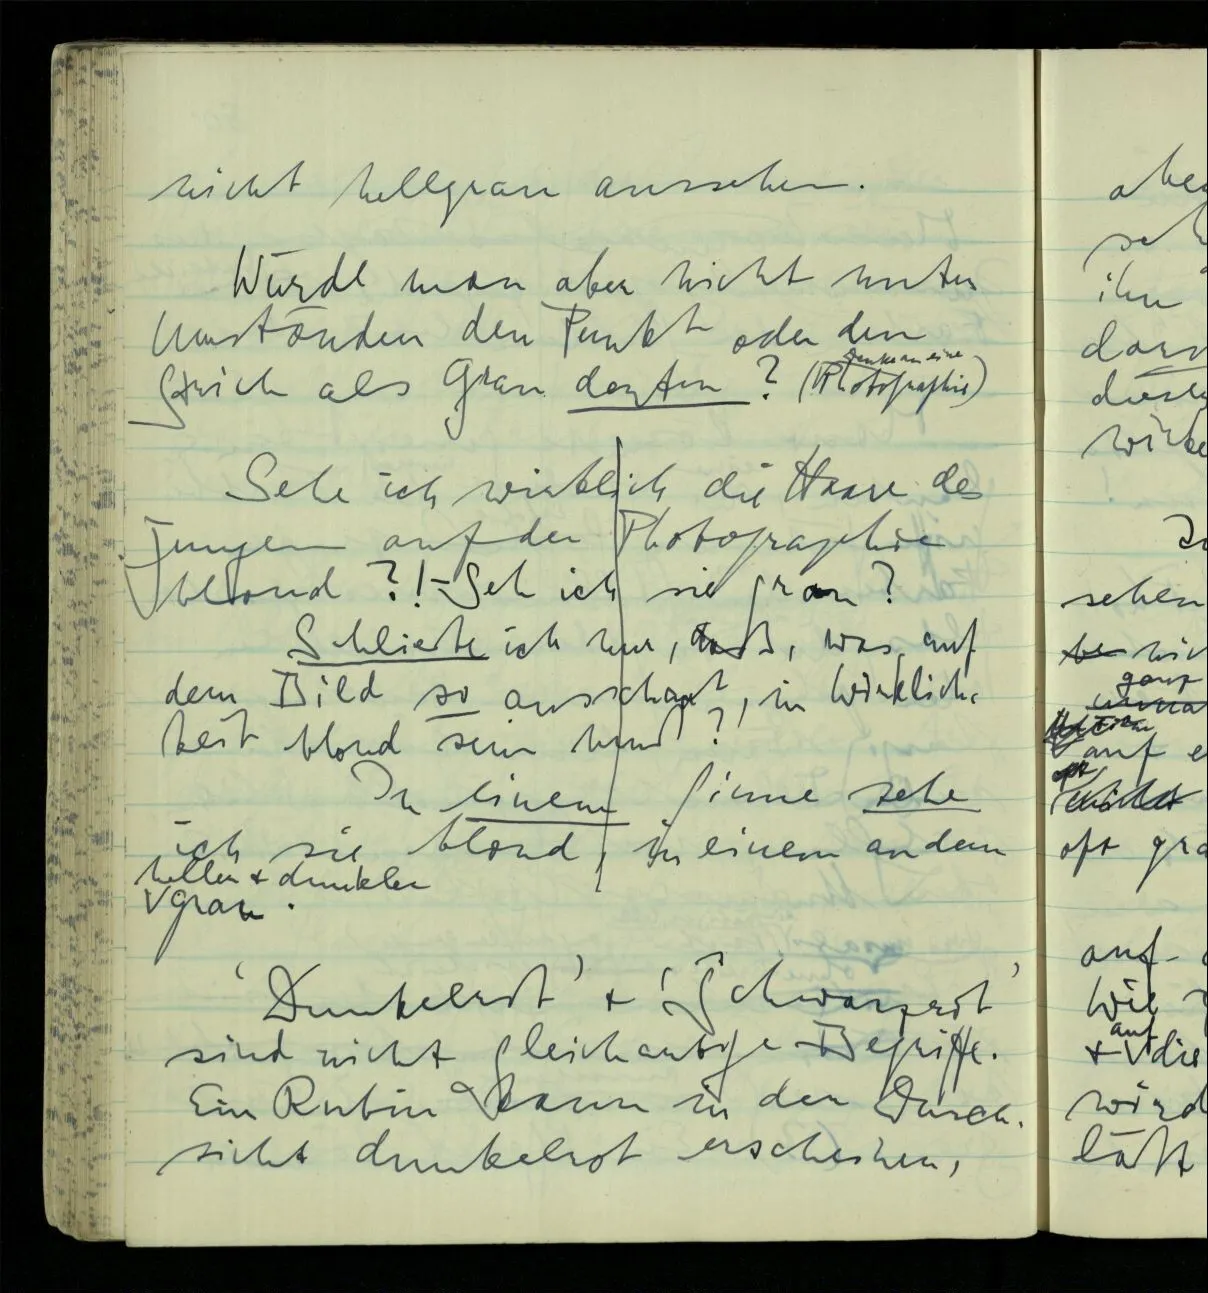 nicht hellgrau aussehen.
Würde man aber nicht unter
Umständen den Punkt oder den
Strich als Grau deuten ? (Denke an eine Photographie)
Sehe ich wirklich die Haare des
Jungen auf der Photographie
blond ?! – Seh ich sie grau ?
Schließe ich nur, daß, was auf
dem Bild so ausschaut, in Wirklich-
keit blond sein muß ?
In einem Sinne sehe
ich sie blond, in einem andern
heller & dunkler
grau.
'Dunkelrot' & 'Schwarzrot'
sind nicht gleichartige Begriffe.
Ein Rubin kann in der Durch-
sicht dunkelrot erscheinen,
ihn
sehen
ganz
auf
oft
auf
wie
auf
& die
läßt